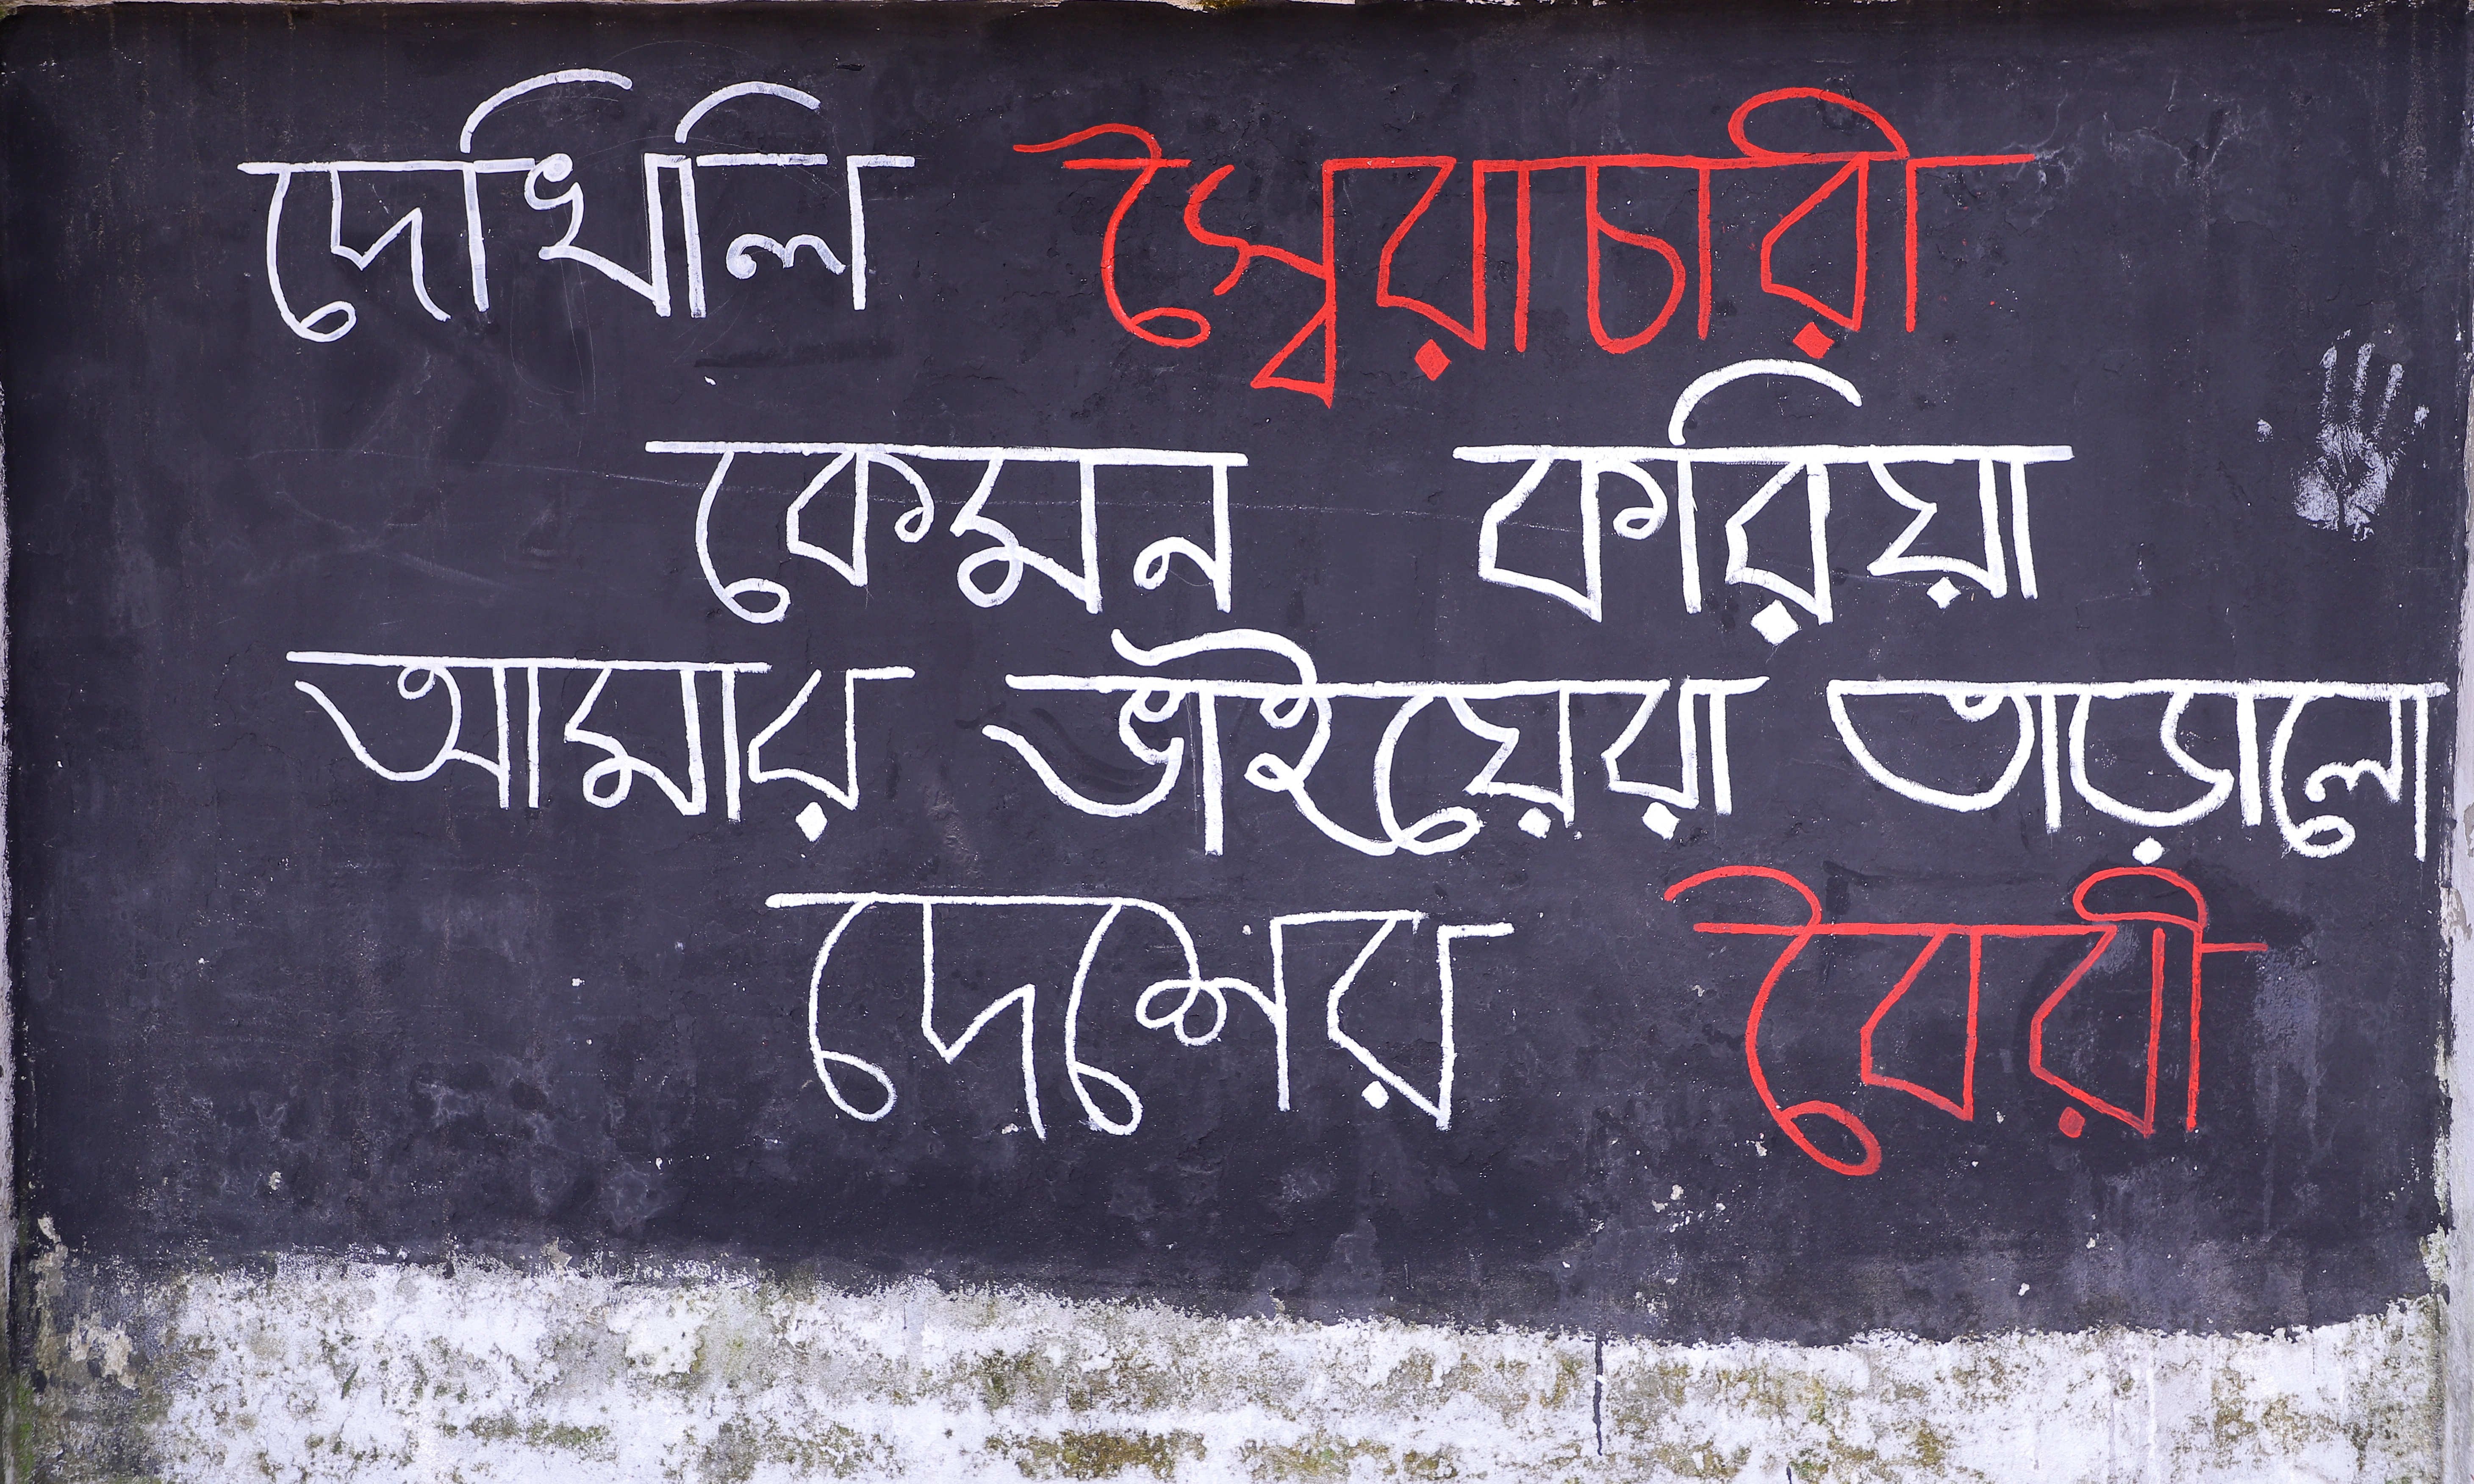 দেখিলি স্বৈরাচারী
কেমন করিয়া
আমার ভাইয়েরা তাড়ালো
দেশের বৈরী